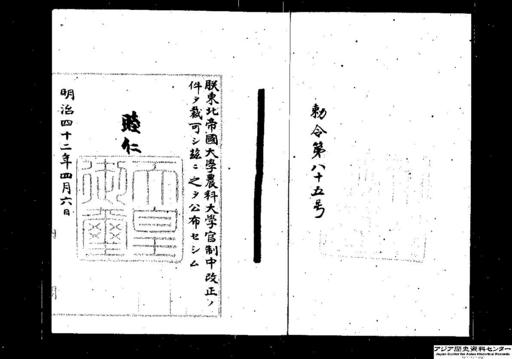 勅令第八十五号
朕東北帝國大學農科大学官制中改正ノ
件ヲ裁可シ玆ニ之ヲ公布セシム
睦仁
天皇
御璽
明治四十二年四月六日
アジア歴史資料センター
Japan Center for Asian Historical Records